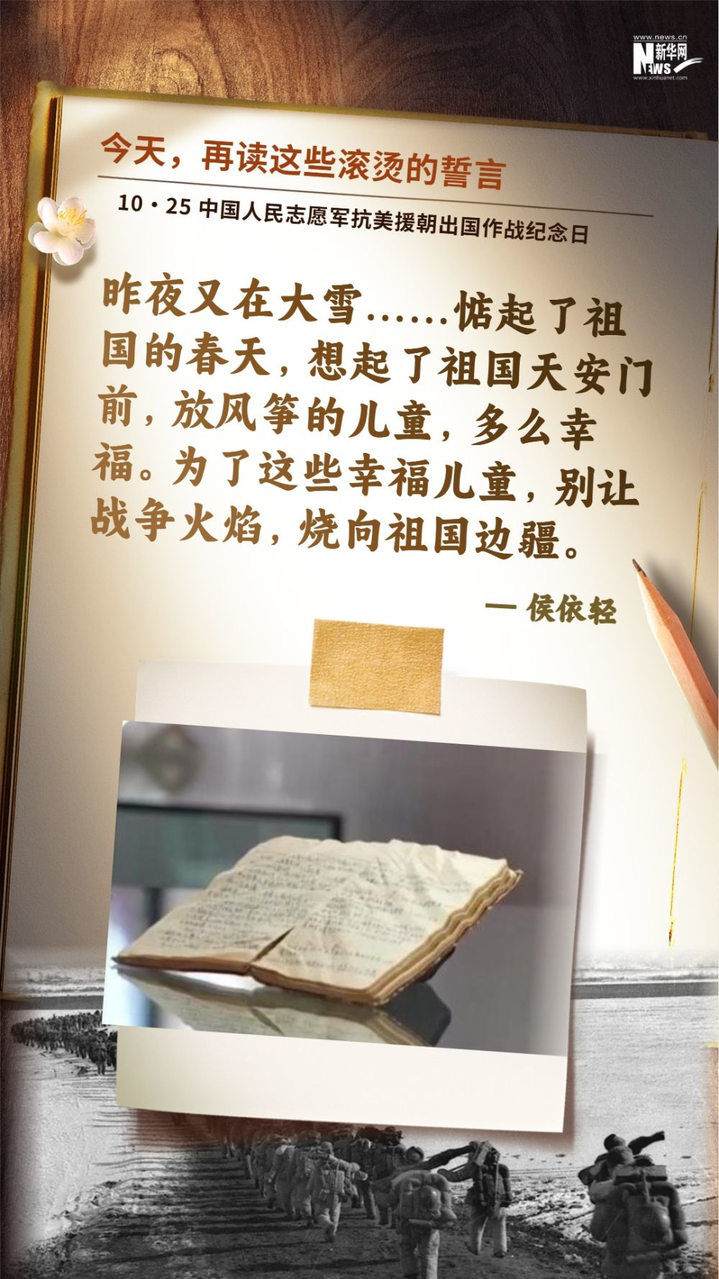 www.news.cn
新华网
NEWS
www.xinhuanet.com
今天，再读这些滚烫的誓言
10·25 中国人民志愿军抗美援朝出国作战纪念日
昨夜又在大雪……惦起了祖
国的春天，想起了祖国天安门
前，放风筝的儿童，多么幸
福。为了这些幸福儿童，别让
战争火焰，烧向祖国边疆。
— 侯依轻